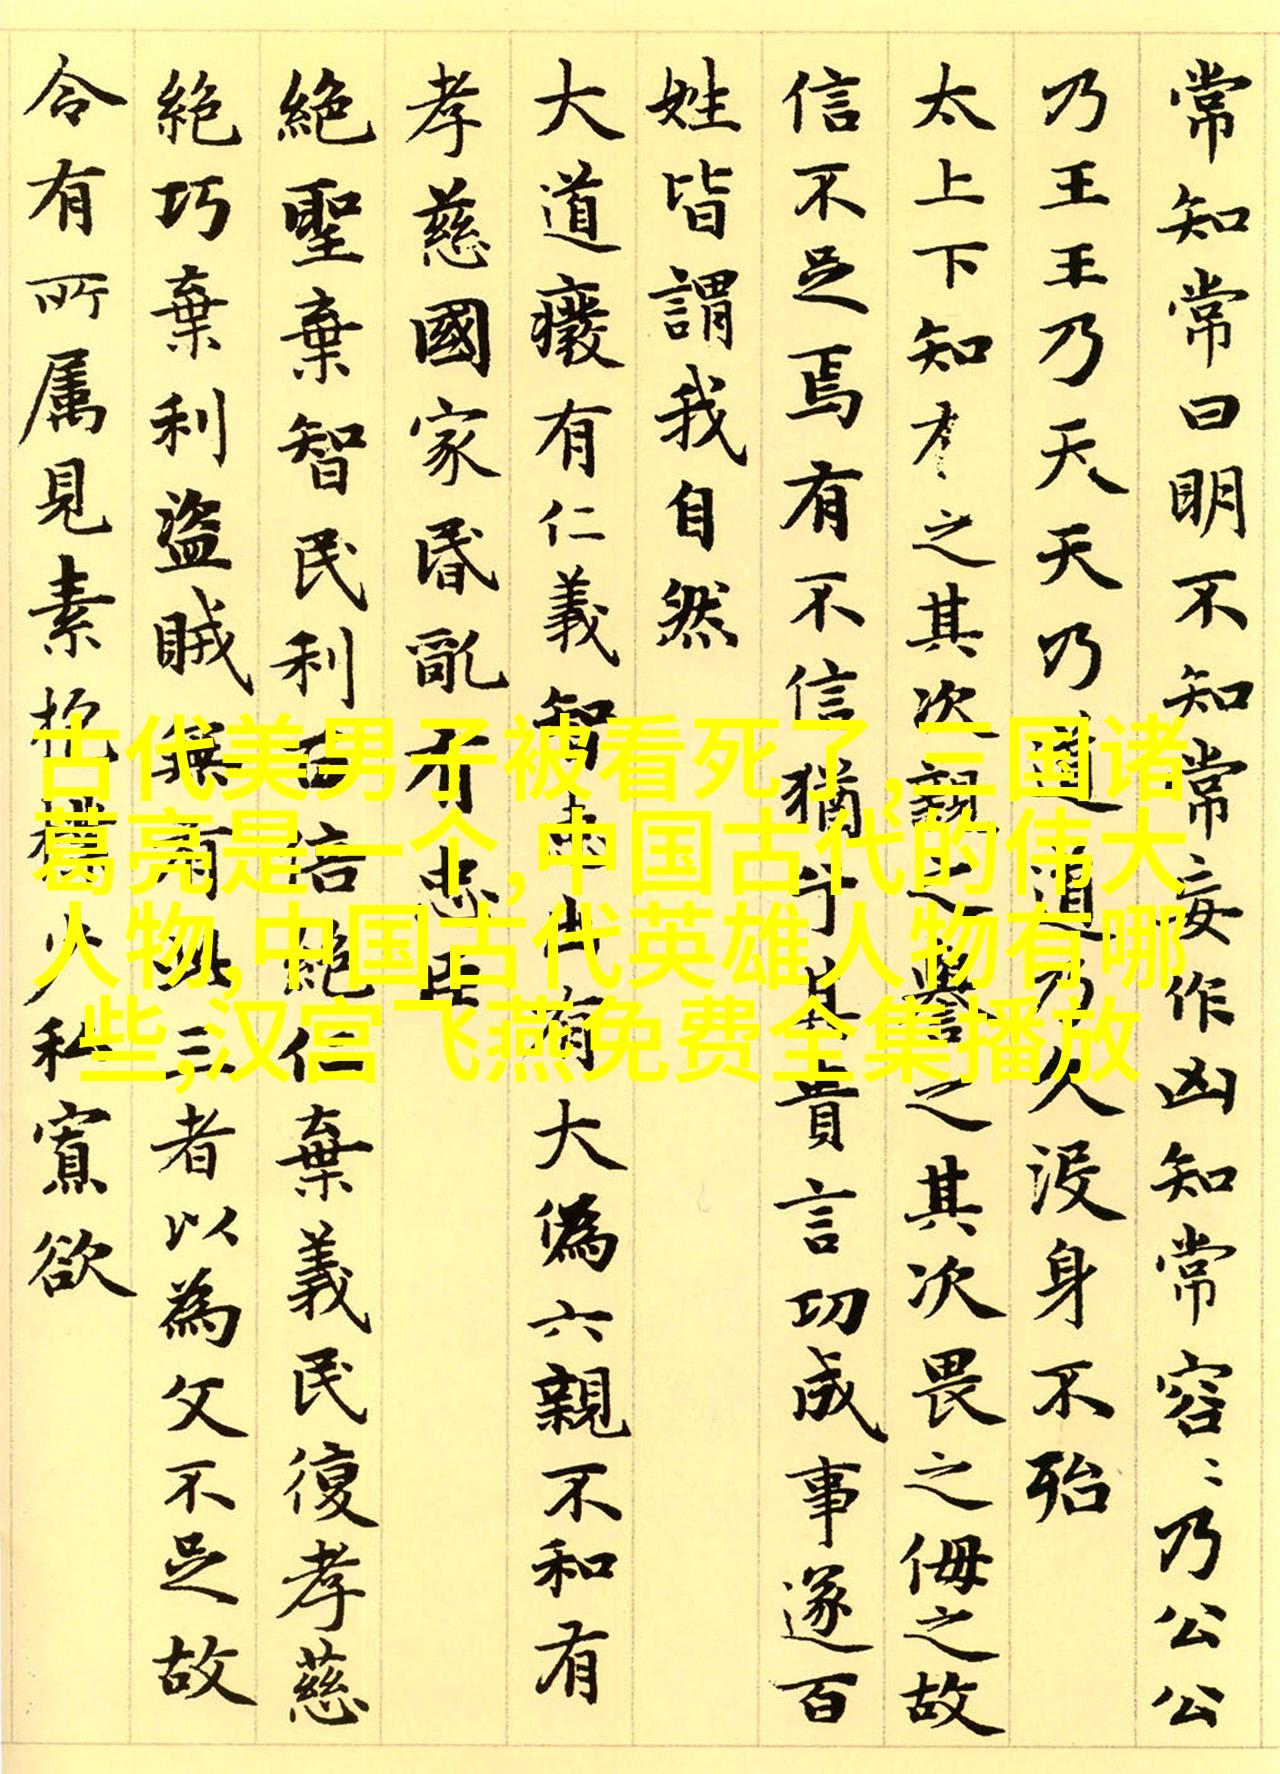 常知常曰明不知常妄作凶知常容〻乃公公
乃王王乃天天乃道道乃久没身不殆
太上下知有之其次親之譽之其次畏之侮之故
信不足焉有不信猶乎其貴言功成事遂百
姓皆謂我自然
大道癈有仁義智出有大偽六親不和有
孝慈國家昬亂有忠臣
絶聖棄智民利百倍絶仁棄義民復孝慈
絶巧棄利盜賊無有此三者以為文不足故
令有所属見素抱樸少私寡欲
古代美男子被看死了,三国诸
葛亮是一个,中国古代的伟大
人物,中国古代英雄人物有哪
些,汉宫飞燕免费全集播放